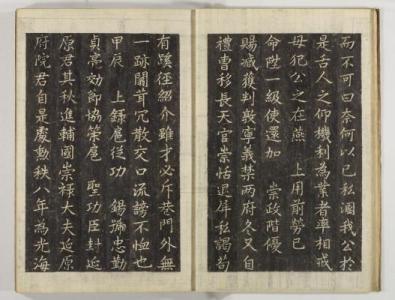 而不可曰奈何以已私溷我公於
是舌人之仰機利為業者率相戒
毋犯公之在燕　上用前勞已
命陞一級使還加　崇政階優
賜臧獲判敦寧義禁兩府久又自
禮曹移長天官崇恬退屏私謁苟
有蹊徑紹介雖才必斥巷門外無
一跡闒茸冗散交口流謗不恤也
甲辰　上錄扈從功　錫號忠勤
貞亮効節協策扈　聖功臣封延
原君其秋進輔國崇祿大夫延原
府院君自是處勳秩八年為光海